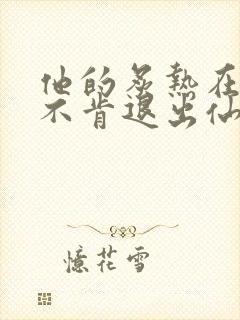 他的炙热在
不肯退出仙
憶花雪